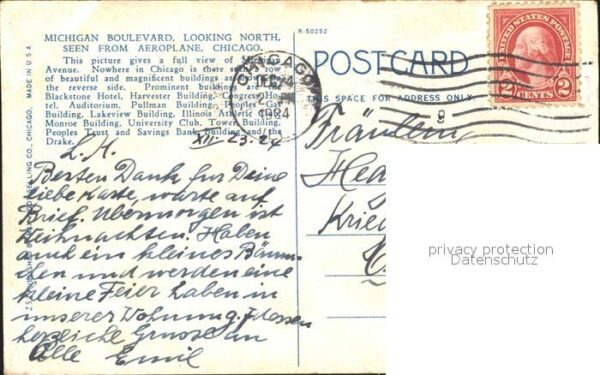 MICHIGAN BOULEVARD, LOOKING NORTH,
SEEN FROM AEROPLANE, CHICAGO.
This picture gives a full view of Michigan
Avenue. Nowhere in Chicago is there a row
of beautiful and magnificent buildings as shown on
the reverse side. Prominent buildings are
Blackstone Hotel, Harvester Building, Congress Ho-
tel, Auditorium, Pullman Building, Peoples Gas
Building, Lakeview Building, Illinois Athletic Club,
Monroe Building, University Club, Tower Building,
Peoples Trust and Savings Bank Building and the
Drake.
XII-23.24
L. H.
Besten Dank für Deine
liebe Karte, warte auf
Brief. Übermorgen ist
Weihnachten. Haben
auch ein kleines Bäum-
chen und werden eine
kleine Feier haben in
unserer Wohnung.
herzliche Grüsse an
Alle Emil
CO., CHICAGO, MADE IN U.S.A
R-50252
POSTCARD
THIS SPACE FOR ADDRESS ONLY
CHICAGO
DEC 24
1924
UNITED STATES POSTAGE
2 CENTS 2
Fräulein
privacy protection
Datenschutz